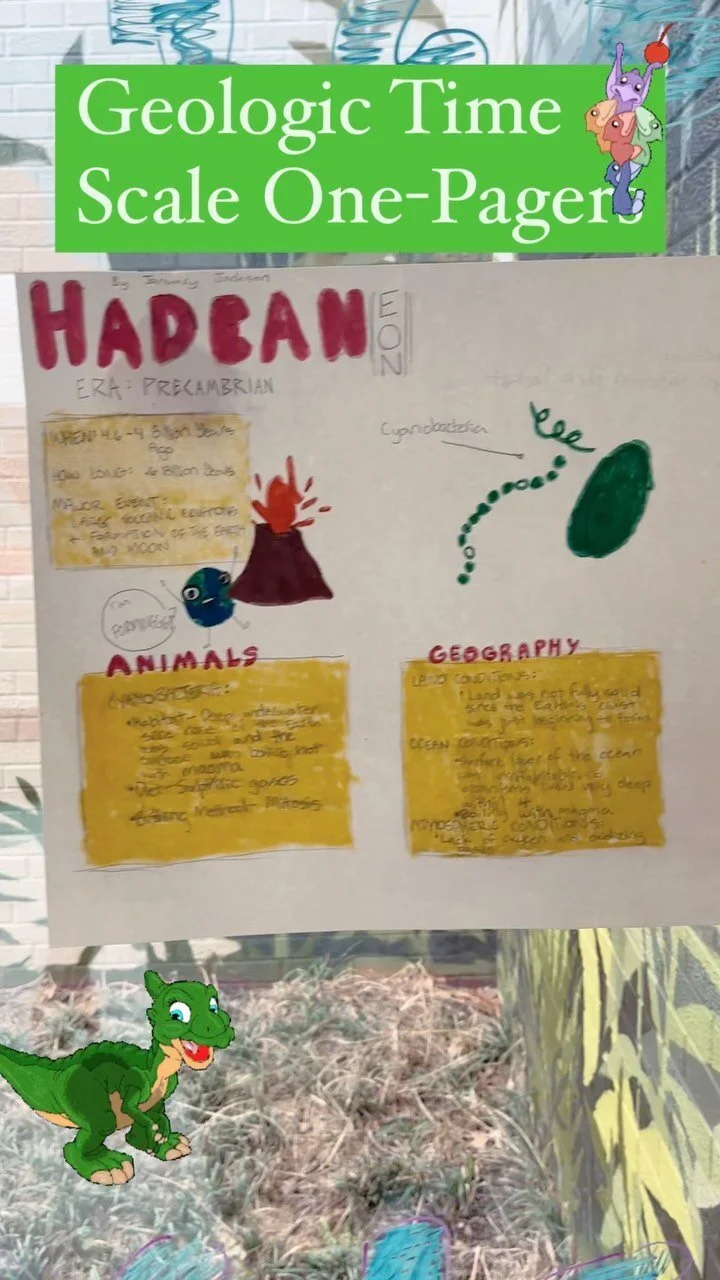 Geologic Time
Scale One-Pagers
By January Jackson
HADEAN
EON
ERA: PRECAMBRIAN
WHEN: 4.6-4 Billion Years
Ago
HOW LONG: .6 Billion Years
MAJOR EVENT:
LARGE VOLCANIC ERUPTIONS
+ FORMATION OF THE EARTH
AND MOON
Cyanobacteria
I'm
FORMING
ANIMALS
CYANOBACTERIA:
•Habitat- Deep underwater
since none of the Earth
was solid and the
surface was boiling hot
with magma
•Diet-
gases
Method- Mitosis
GEOGRAPHY
LAND CONDITIONS:
•Land was not fully solid
since the Earth's crust
was just beginning to form
OCEAN CONDITIONS:
•Surface layer of the ocean
was
so
organisms lived very deep
within it
•Boiling with magma
ATMOSPHERIC CONDITIONS:
•Lack of oxygen and oxidizing
gases